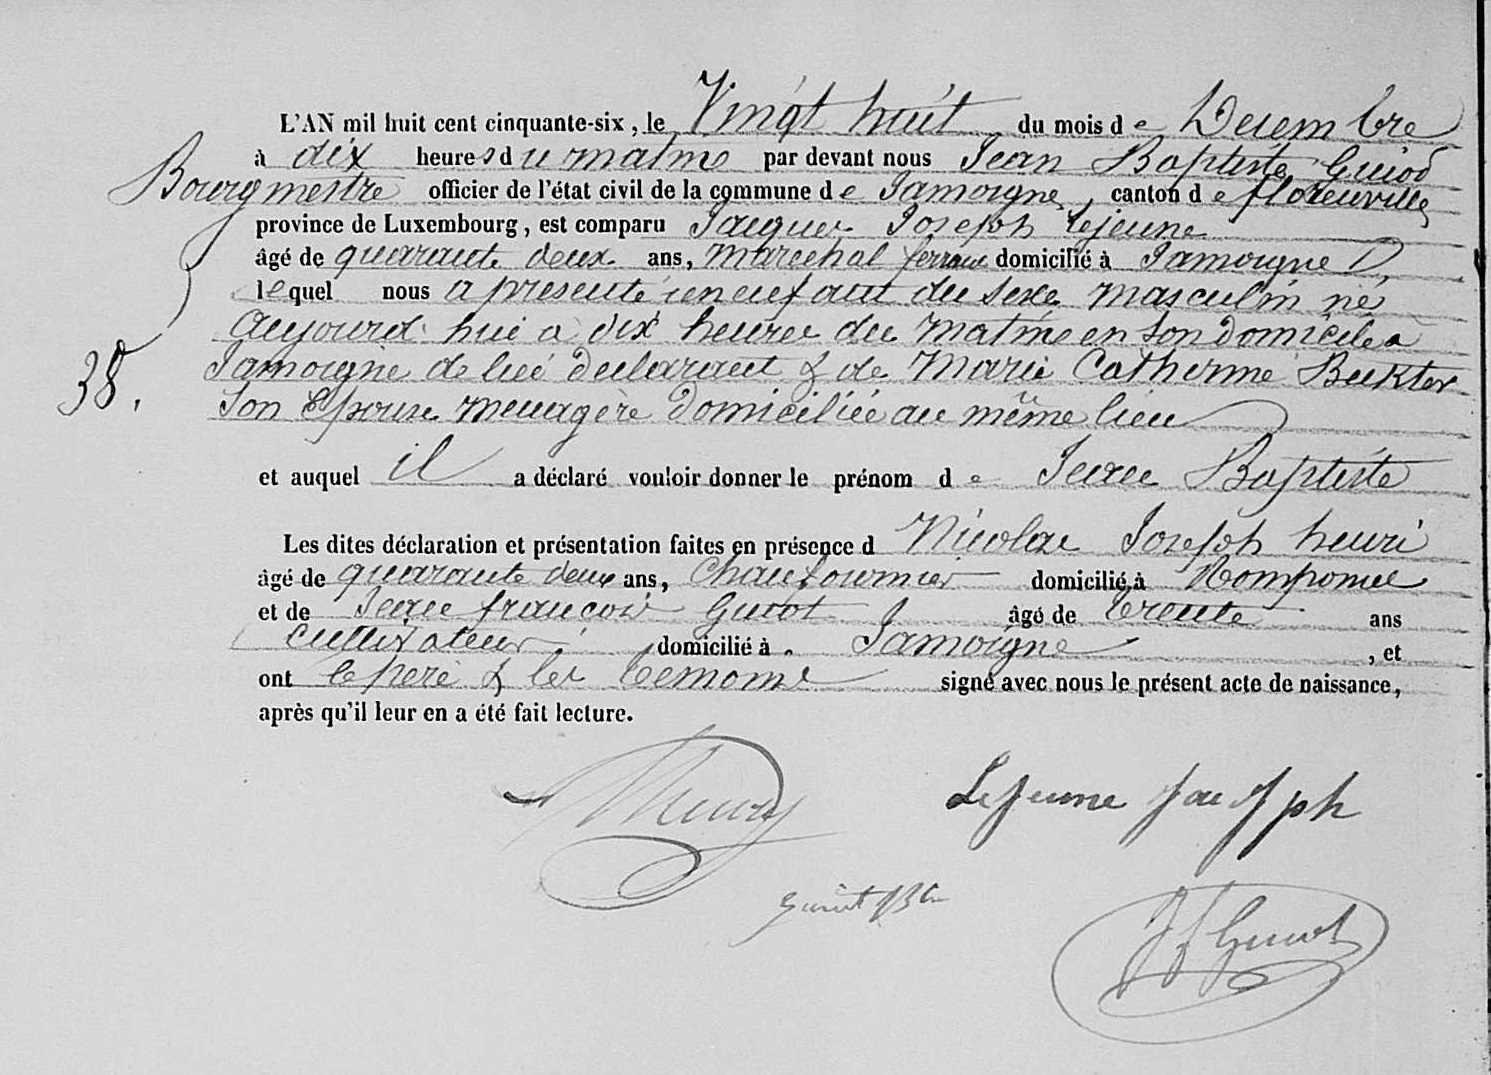 L'AN mil huit cent cinquante-six, le Vingt huit du mois de Decembre
à dix heures du matin par devant nous Jean Baptiste Guiot
Bourgmestre officier de l'état civil de la commune de Jamoigne, canton de florenville
province de Luxembourg, est comparu Jacques Joseph Lejeune
âgé de quarante deux ans, marechal ferrant domicilié à Jamoigne
lequel nous a presenté un enfant du sexe masculin né
aujourd'hui a dix heures du matin en son domicile a
38. Jamoigne de lui déclarant & de Marie Catherine
son Epouse menagère domiciliée au même lieu
et auquel il a déclaré vouloir donner le prénom de Jean Baptiste
Les dites déclaration et présentation faites en présence d Nicolas Joseph henri
âgé de quarante deux ans, Chaufournier domicilié à
et de Jean francois Guiot âgé de trente ans
cultivateur domicilié à Jamoigne, et
ont le père & les temoins signé avec nous le présent acte de naissance,
après qu'il leur en a été fait lecture.
Lejeune Joseph
Guiot
JfGuiot